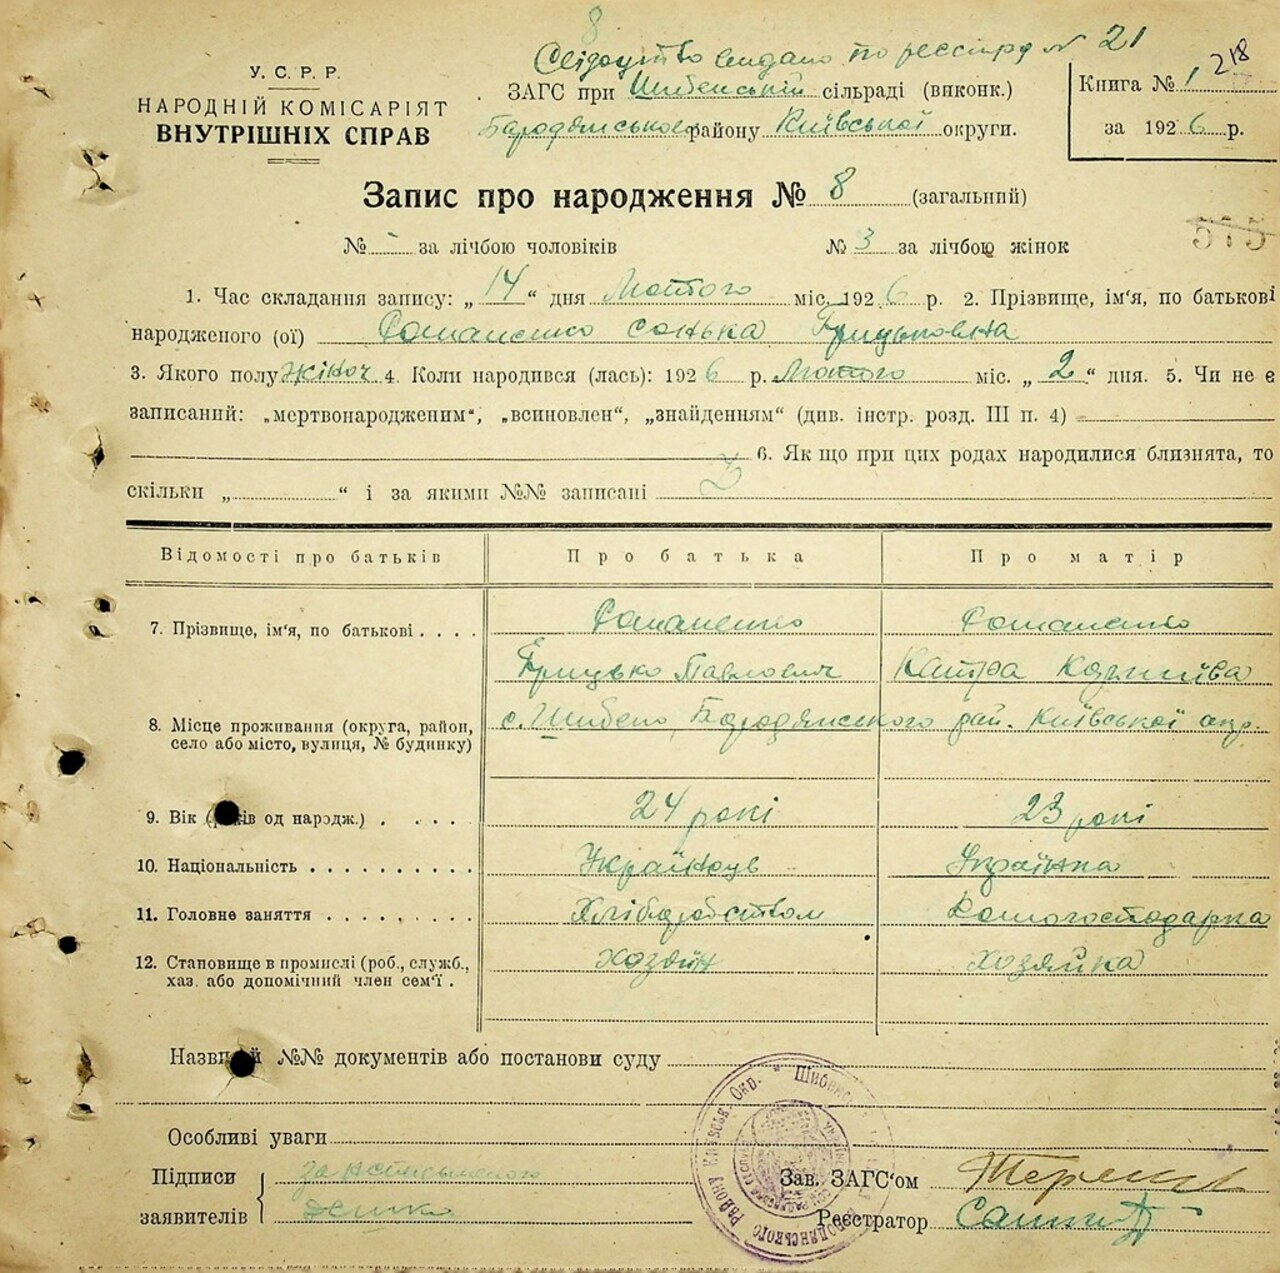 8
Свідоцтво видано по реєстру № 21
У. С. Р. Р.
НАРОДНІЙ КОМІСАРІЯТ
ВНУТРІШНІХ СПРАВ
ЗАГС при Шибенській сільраді (виконк.)
Бородянського району Київської округи.
Книга № 1 218
за 1926 р.
Запис про народження № 8 (загальний)
№ - за лічбою чоловіків № 3 за лічбою жінок
575
1. Час складання запису: „14“ дня Лютого міс. 1926 р. 2. Прізвище, ім‘я, по батькові
народженого (ої) Романенко Сонька Грицьковна
3. Якого полу жіноч. 4. Коли народився (лась): 1926 р. Лютого міс. „2“ дня. 5. Чи не є
записаний: „мертвонародженим“, „всиновлен“, „знайденням“ (див. інстр. розд. III п. 4)
6. Як що при цих родах народилися близнята, то
скільки „ “ і за якими №№ записані
Відомості про батьків Про батька Про матір
7. Прізвище, ім‘я, по батькові . . . . Романенко Романенко
Грицько Павлович Катра
8. Місце проживання (округа, район, с. Шибено, Бородянського рай. Київської окр.
село або місто, вулиця, № будинку)
9. Вік ( ків од народж.) . . . . 24 рокі 23 рокі
10. Національність . . . . . . . . . . Українець Українка
11. Головне заняття . . . . . . . . . Хліборобством Домогосподарка
12. Становище в промислі (роб., служб., Хозяїн Хозяйка
хаз. або допомічний член сем‘ї .
Назви й №№ документів або постанови суду
Особливі уваги
Підписи за
заявителів
Зав. ЗАГС‘ом
Реєстратор